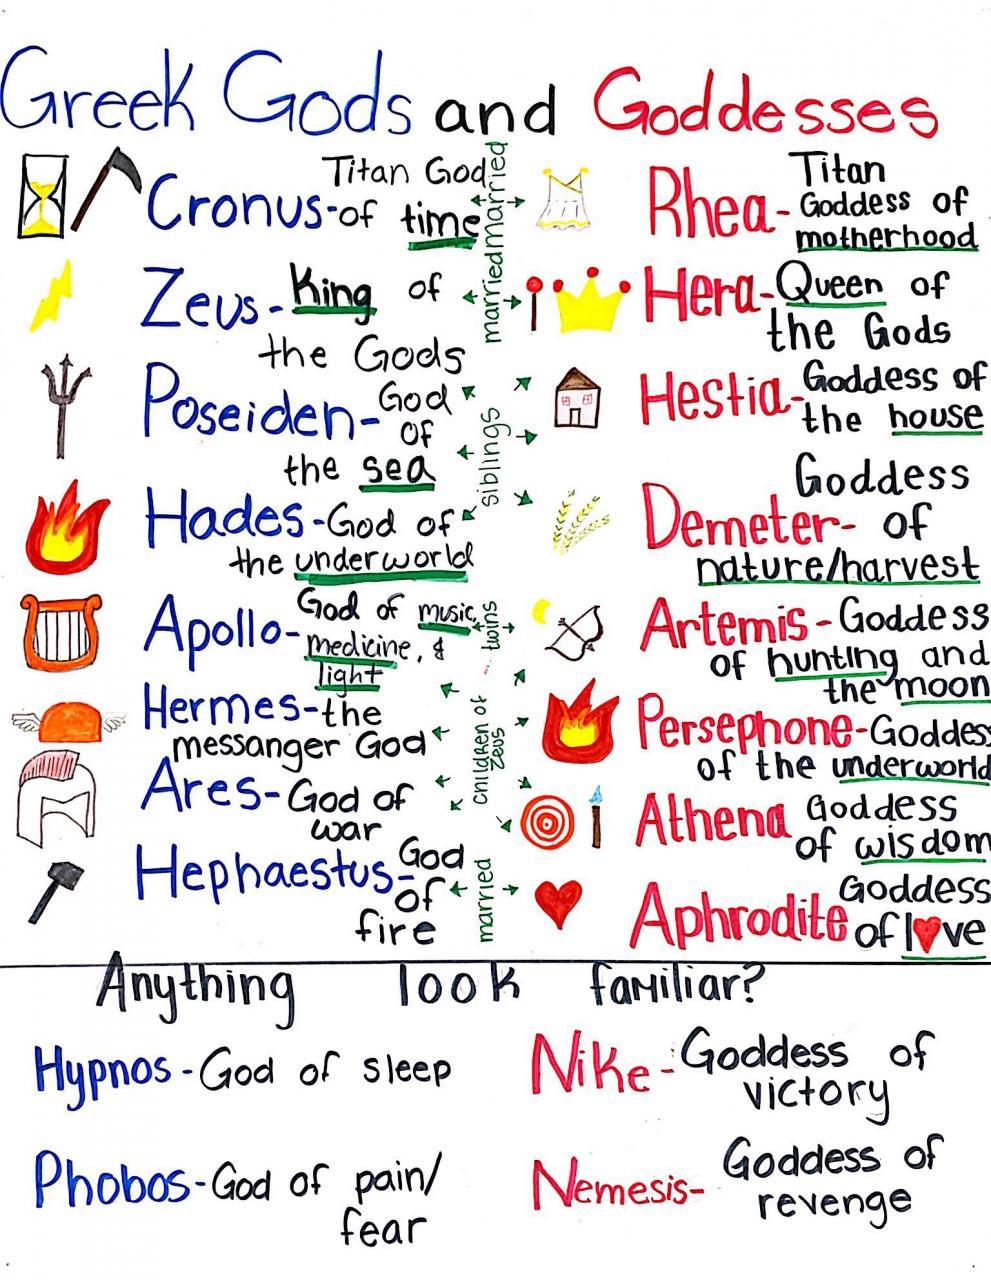 Greek Gods and Goddesses
Titan God
Cronus-of time
married
Titan
Rhea-Goddess of
motherhood
Zeus-King of
the Gods
married
Hera-Queen of
the Gods
Poseiden-God
of
the sea
siblings
Hestia-Goddess of
the house
Hades-God of
the underworld
Goddess
Demeter- of
nature/harvest
God of music,
Apollo-medicine, &
light
twins
Artemis-Goddess
of hunting and
the moon
Hermes-the
messanger God
children of
Zeus
Persephone-Goddess
of the underworld
Ares-God of
war
Athena Goddess
of wisdom
Hephaestus-God
of
fire
married
Goddess
Aphrodite of l♥ve
Anything look familiar?
Hypnos-God of sleep
Nike-Goddess of
victory
Phobos-God of pain/
fear
Nemesis-Goddess of
revenge